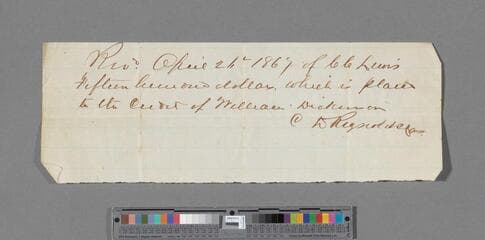 Recd. April 24th 1867 of C C Lewis
Fifteen hundred dollars which is place
to the Credit of William Dickinson
C D Reynolds & Co